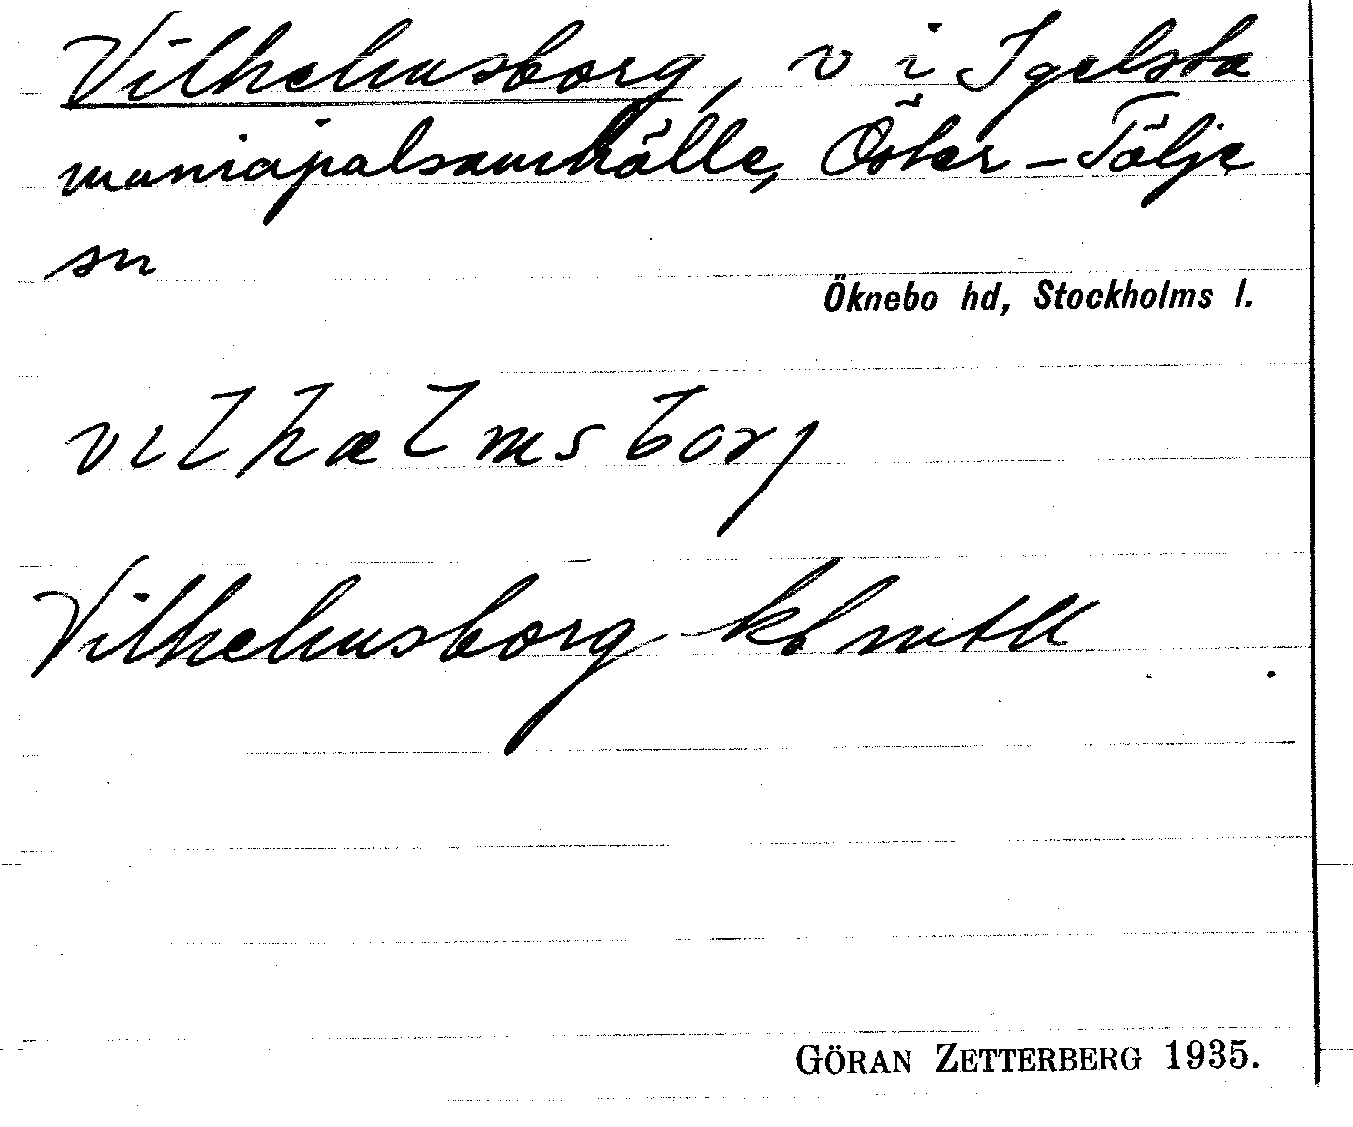 Vilhelmsborg, v i Igelsta
municipalsamhälle, Öster-Tälje
sn
Öknebo hd, Stockholms l.
vɩlhælmsborj
Vilhelmsborg
GÖRAN ZETTERBERG 1935.